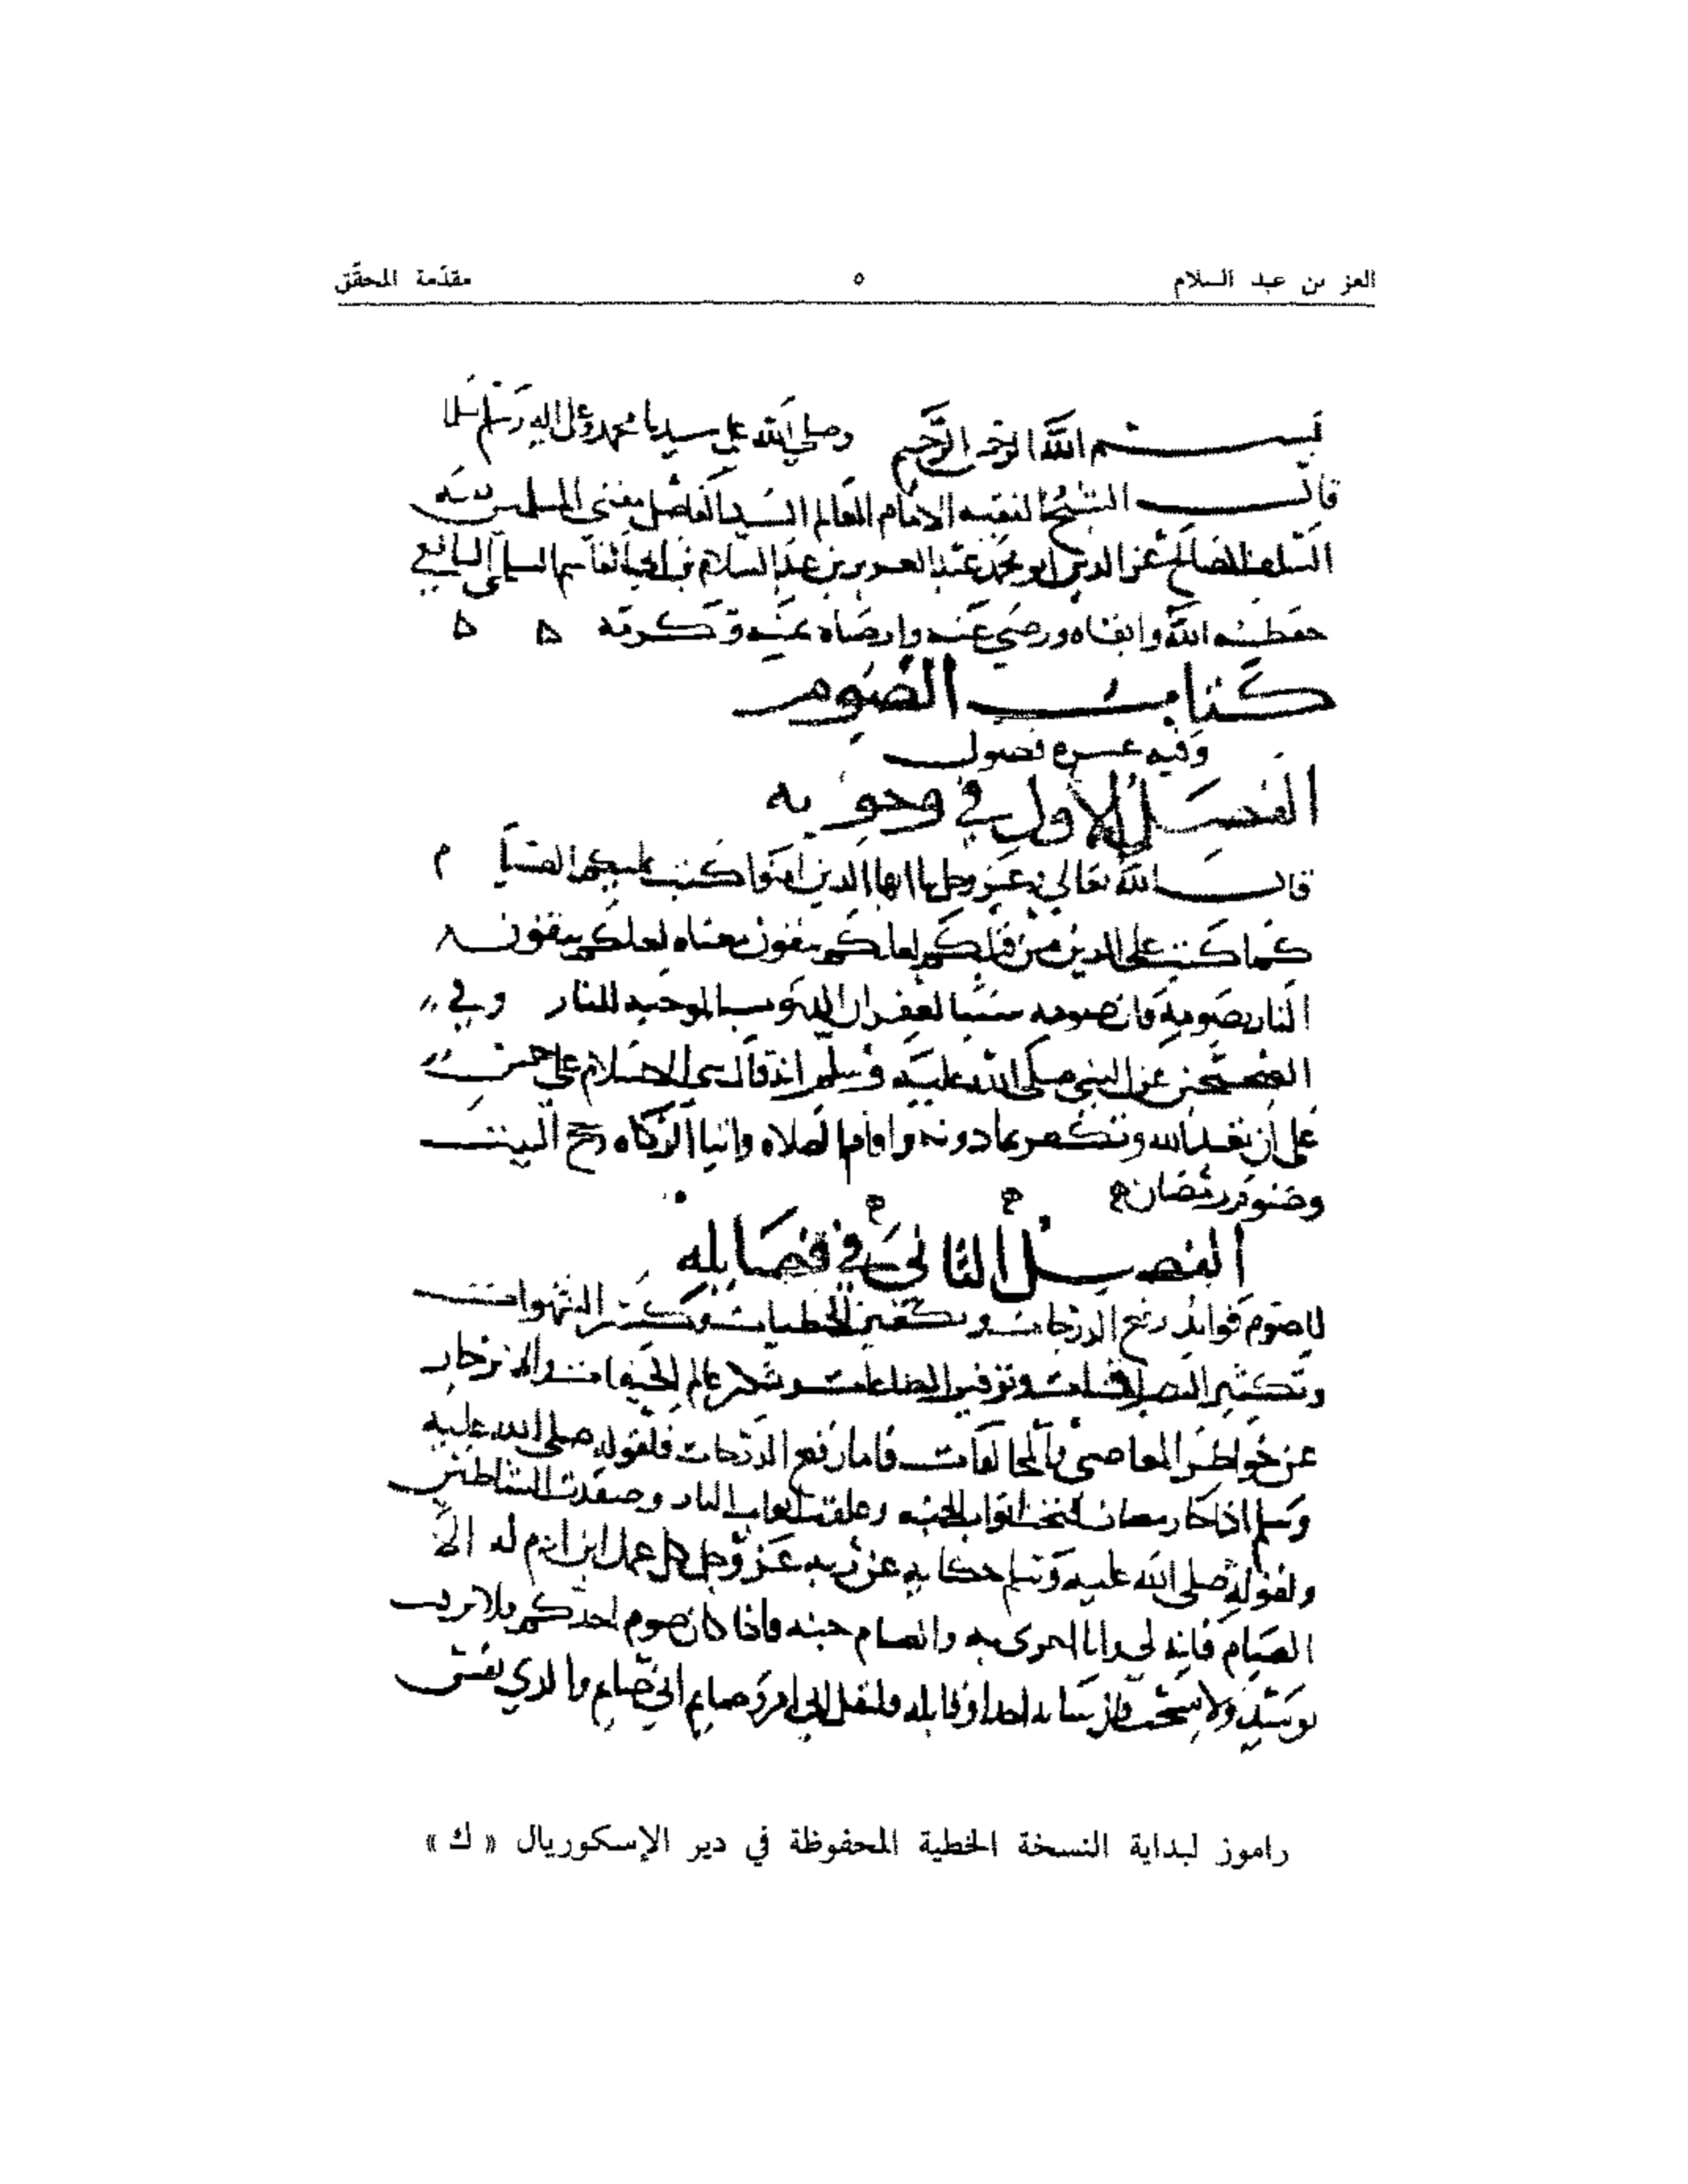 العز بن عبد السلام ٥ مقدّمة المحقّق
بسم الله الرحمن الرحيم وصلى الله على سيدنا محمد وعلى اله وسلم
قال الشيخ الفقيه الامام العالم السيد الفاضل مفتي المسلمين بقية
السلف الصالح عز الدين ابو محمد عبد العزيز بن عبد السلام بن ابي القاسم السلمي الشافعي
حفظه الله وابقاه ورضي عنه وارضاه بمنه وكرمه ه ه
كتاب الصوم
وفيه عشره فصول
الفصل الاول في وجوبه
قال الله تعالى عز وجل يا ايها الذين امنوا كتب عليكم الصيام
كما كتب على الذين من قبلكم لعلكم تتقون معناه لعلكم تتقون
النار بصومه فان صومه سببا لغفران الذنوب الموجبه للنار وفي
الصحيحين عن النبي صلى الله عليه وسلم انه قال بني الاسلام على خمس
على ان تعبد الله وتكفر بما دونه واقام الصلاه وايتا الزكاه وحج البيت
وصوم رمضان
الفصل الثاني في فضايله
للصوم فوايد رفع الدرجات وتكفير الخطيات وكسر الشهوات
وتكثير الصدقات وتوفير الطاعات وشكر عالم الخفيات والانزجار
عن خواطر المعاصي والمخالفات فاما رفع الدرجات فلقوله صلى الله عليه
وسلم اذا جا رمضان فتحت ابواب الجنه وغلقت ابواب النار وصفدت الشياطين
ولقوله صلى الله عليه وسلم حكايه عن ربه عز وجل كل عمل ابن ادم له الا
الصيام فانه لي وانا اجزي به والصيام جنه فاذا كان صوم احدكم فلا يرفث
يوميذ ولا يسخب فان سابه احد او قاتله فليقل اني امرؤ صايم اني صايم والذي نفس
راموز لبداية النسخة الخطية المحفوظة في دير الإسكوريال « ك »